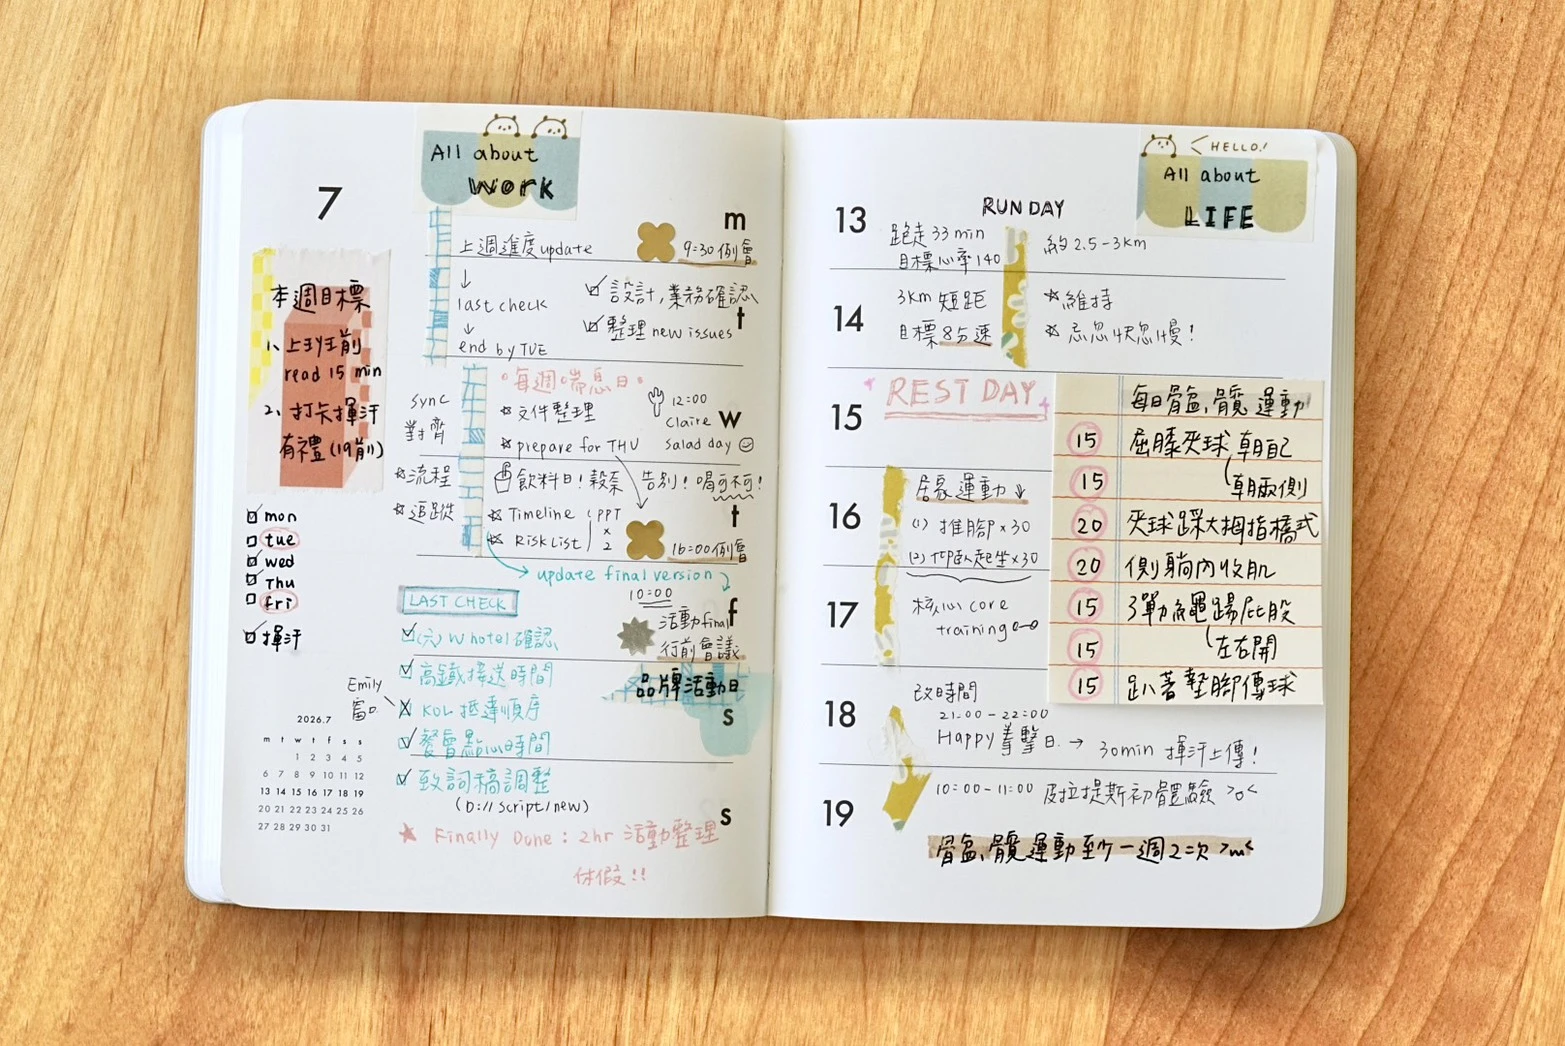 7
All about
WORK
m
上週進度update
9:30例會
↓
last check
↓
end by TUE
設計,業務確認
整理 new issues
t
本週目標
1、上班前
read 15 min
2、打卡揮汗
有禮(19前)
mon
tue
wed
Thu
fri
揮汗
每週喘息日
sync
對齊
☆文件整理
☆prepare for THU
12:00
Claire
Salad day
w
☆流程
☆追蹤
飲料日!穀奈 告別!喝可不可!
☆Timeline
☆Risk List
PPT
x
2
t
16:00例會
update final version
LAST CHECK
10:00
活動final
行前會議
f
(六) W hotel確認
高鐵接送時間
品牌活動日
Emily
窗口
KOL 抵達順序
s
餐會點心時間
致詞稿調整
(D://script/new)
s
★ Finally Done : 2hr 活動整理
休假!!
2026.7
m t w t f s s
1 2 3 4 5
6 7 8 9 10 11 12
13 14 15 16 17 18 19
20 21 22 23 24 25 26
27 28 29 30 31
HELLO!
All about
LIFE
13
RUN DAY
跑走33 min
目標心率140
約2.5-3km
14
3km 短距
目標8分速
☆維持
☆忽忽快忽慢!
15
REST DAY
每日骨盆、髖 運動
15 屈膝夾球 朝自己
15 朝兩側
20 夾球踩大拇指橋式
20 側躺內收肌
15 彈力繩踢屁股
15 左右開
15 趴著墊腳傳球
16
居家運動↓
(1) 推腳×30
(2) 仰臥起坐×30
17
核心 core
training
18
改時間
21:00-22:00
Happy拳擊日→ 30min 揮汗上傳!
19
10:00-11:00 皮拉提斯初體驗 >o<
骨盆、髖運動至少一週2次 >m<